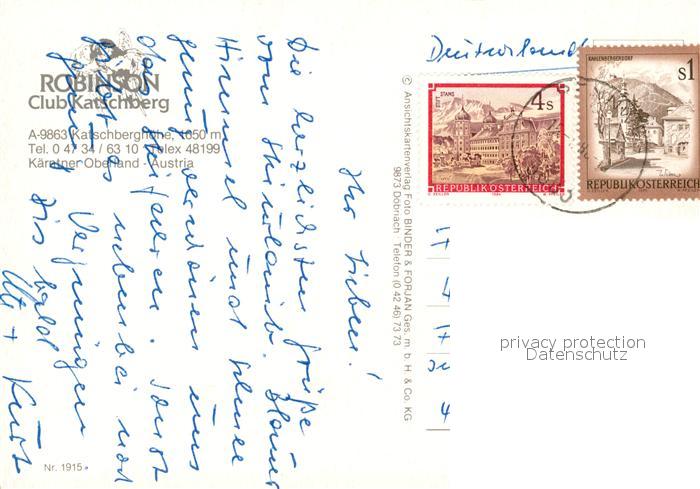 ROBINSON
Club Katschberg
A-9863 Katschberghöhe, 1650 m
Tel. 0 47 34 / 63 10 Telex 48199
Kärntner Oberland - Austria
Ihr Lieben!
Die herzlichsten Grüße
vom Skiurlaub. Blauer
Himmel und Schnee
genug animieren uns
das Skifahren. Sonst
gibt es nebenbei noch
ganz Vergnügen
Bis bald
Uta + Kurt
Nr. 1915
© Ansichtskartenverlag Foto BINDER & FORJAN Ges. m. b. H. & Co. KG
9873 Döbriach · Telefon (0 42 46) 73 73
Deutschland
STIFT STAMS
4 S
REPUBLIK ÖSTERREICH
KAHLENBERGERDORF
S 1
REPUBLIK ÖSTERREICH
privacy protection
Datenschutz